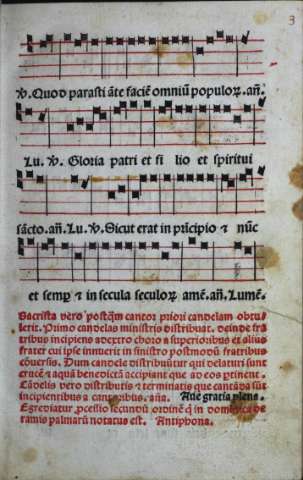 3
℣. Quod parasti ãte faciẽ omniũ populoꝝ. añ.
Lu. ℣. Gloria patri et fi lio et spiritui
sãcto. añ. Lu. ℣. Sicut erat in prĩcipio ⁊ nũc
et semp̱ ⁊ in secula seculoꝝ amẽ. añ. Lumẽ.
Sacrista vero postq̃m cantor priori candelam obtu
lerit. Primo candelas ministris distribuat. deinde fra
tribus incipiens a dextro choro a superioribus et alius
frater cui ipse innuerit in sinistro postmodũ fratribus
cõversis. Dum candele distribuũtur qui delaturi sunt
crucẽ ⁊ aquã benedictã accipiant que ad eos p̱tinent.
Cãdelis vero distributis ⁊ terminatis que cantãda sũt
incipientibus a cantoribus. aña. Aue gratia plena.
Egrediatur ꝓcessio secundũ ordinẽ q̃ in dominica de
ramis palmarũ notatus est. Antiphona.